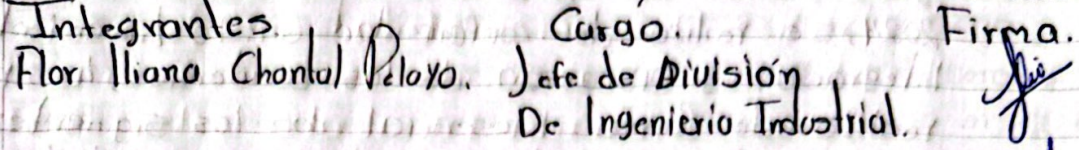 Integrantes. Cargo. Firma.
Flor Iliana Chontal Pelayo. Jefe de División
De Ingenieria Industrial.